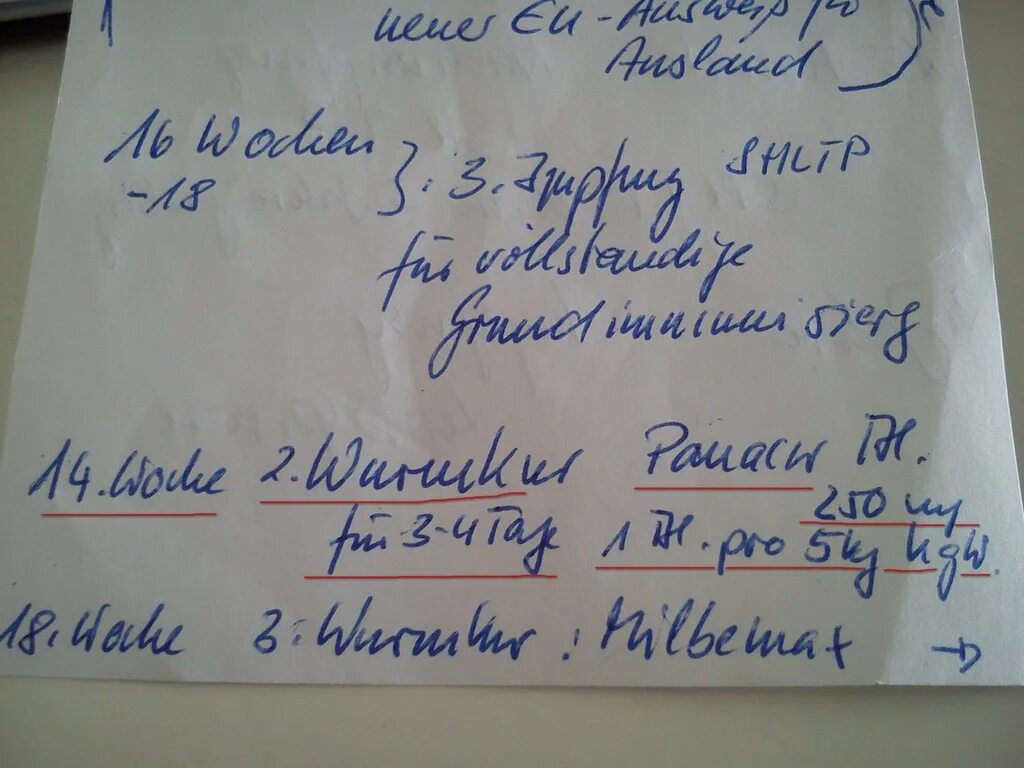 1 neuer EU-Ausweis für
Ausland
16 Wochen
-18 }: 3. Impfung SHLTP
für vollständige
Grundimmunisierg
14. Woche 2. Wurmkur Panacur Tbl.
250 mg
für 3-4 Tage 1 Tbl. pro 5kg KgW.
18. Woche 3. Wurmkur : Milbemax →